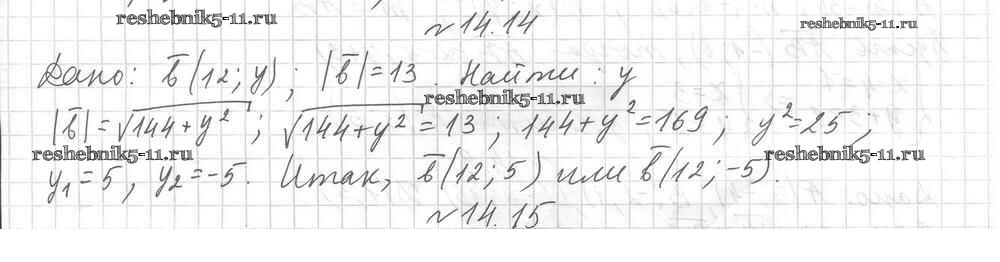 reshebnik5-11.ru
№14.14
reshebnik5-11.ru
Дано: b̅(12; y); |b̅|=13. Найти: y
reshebnik5-11.ru
|b̅|=√144+y²; √144+y²=13; 144+y²=169; y²=25;
reshebnik5-11.ru
reshebnik5-11.ru
y₁=5, y₂=-5. Итак, b̅(12; 5) или b̅(12; -5).
№14.15